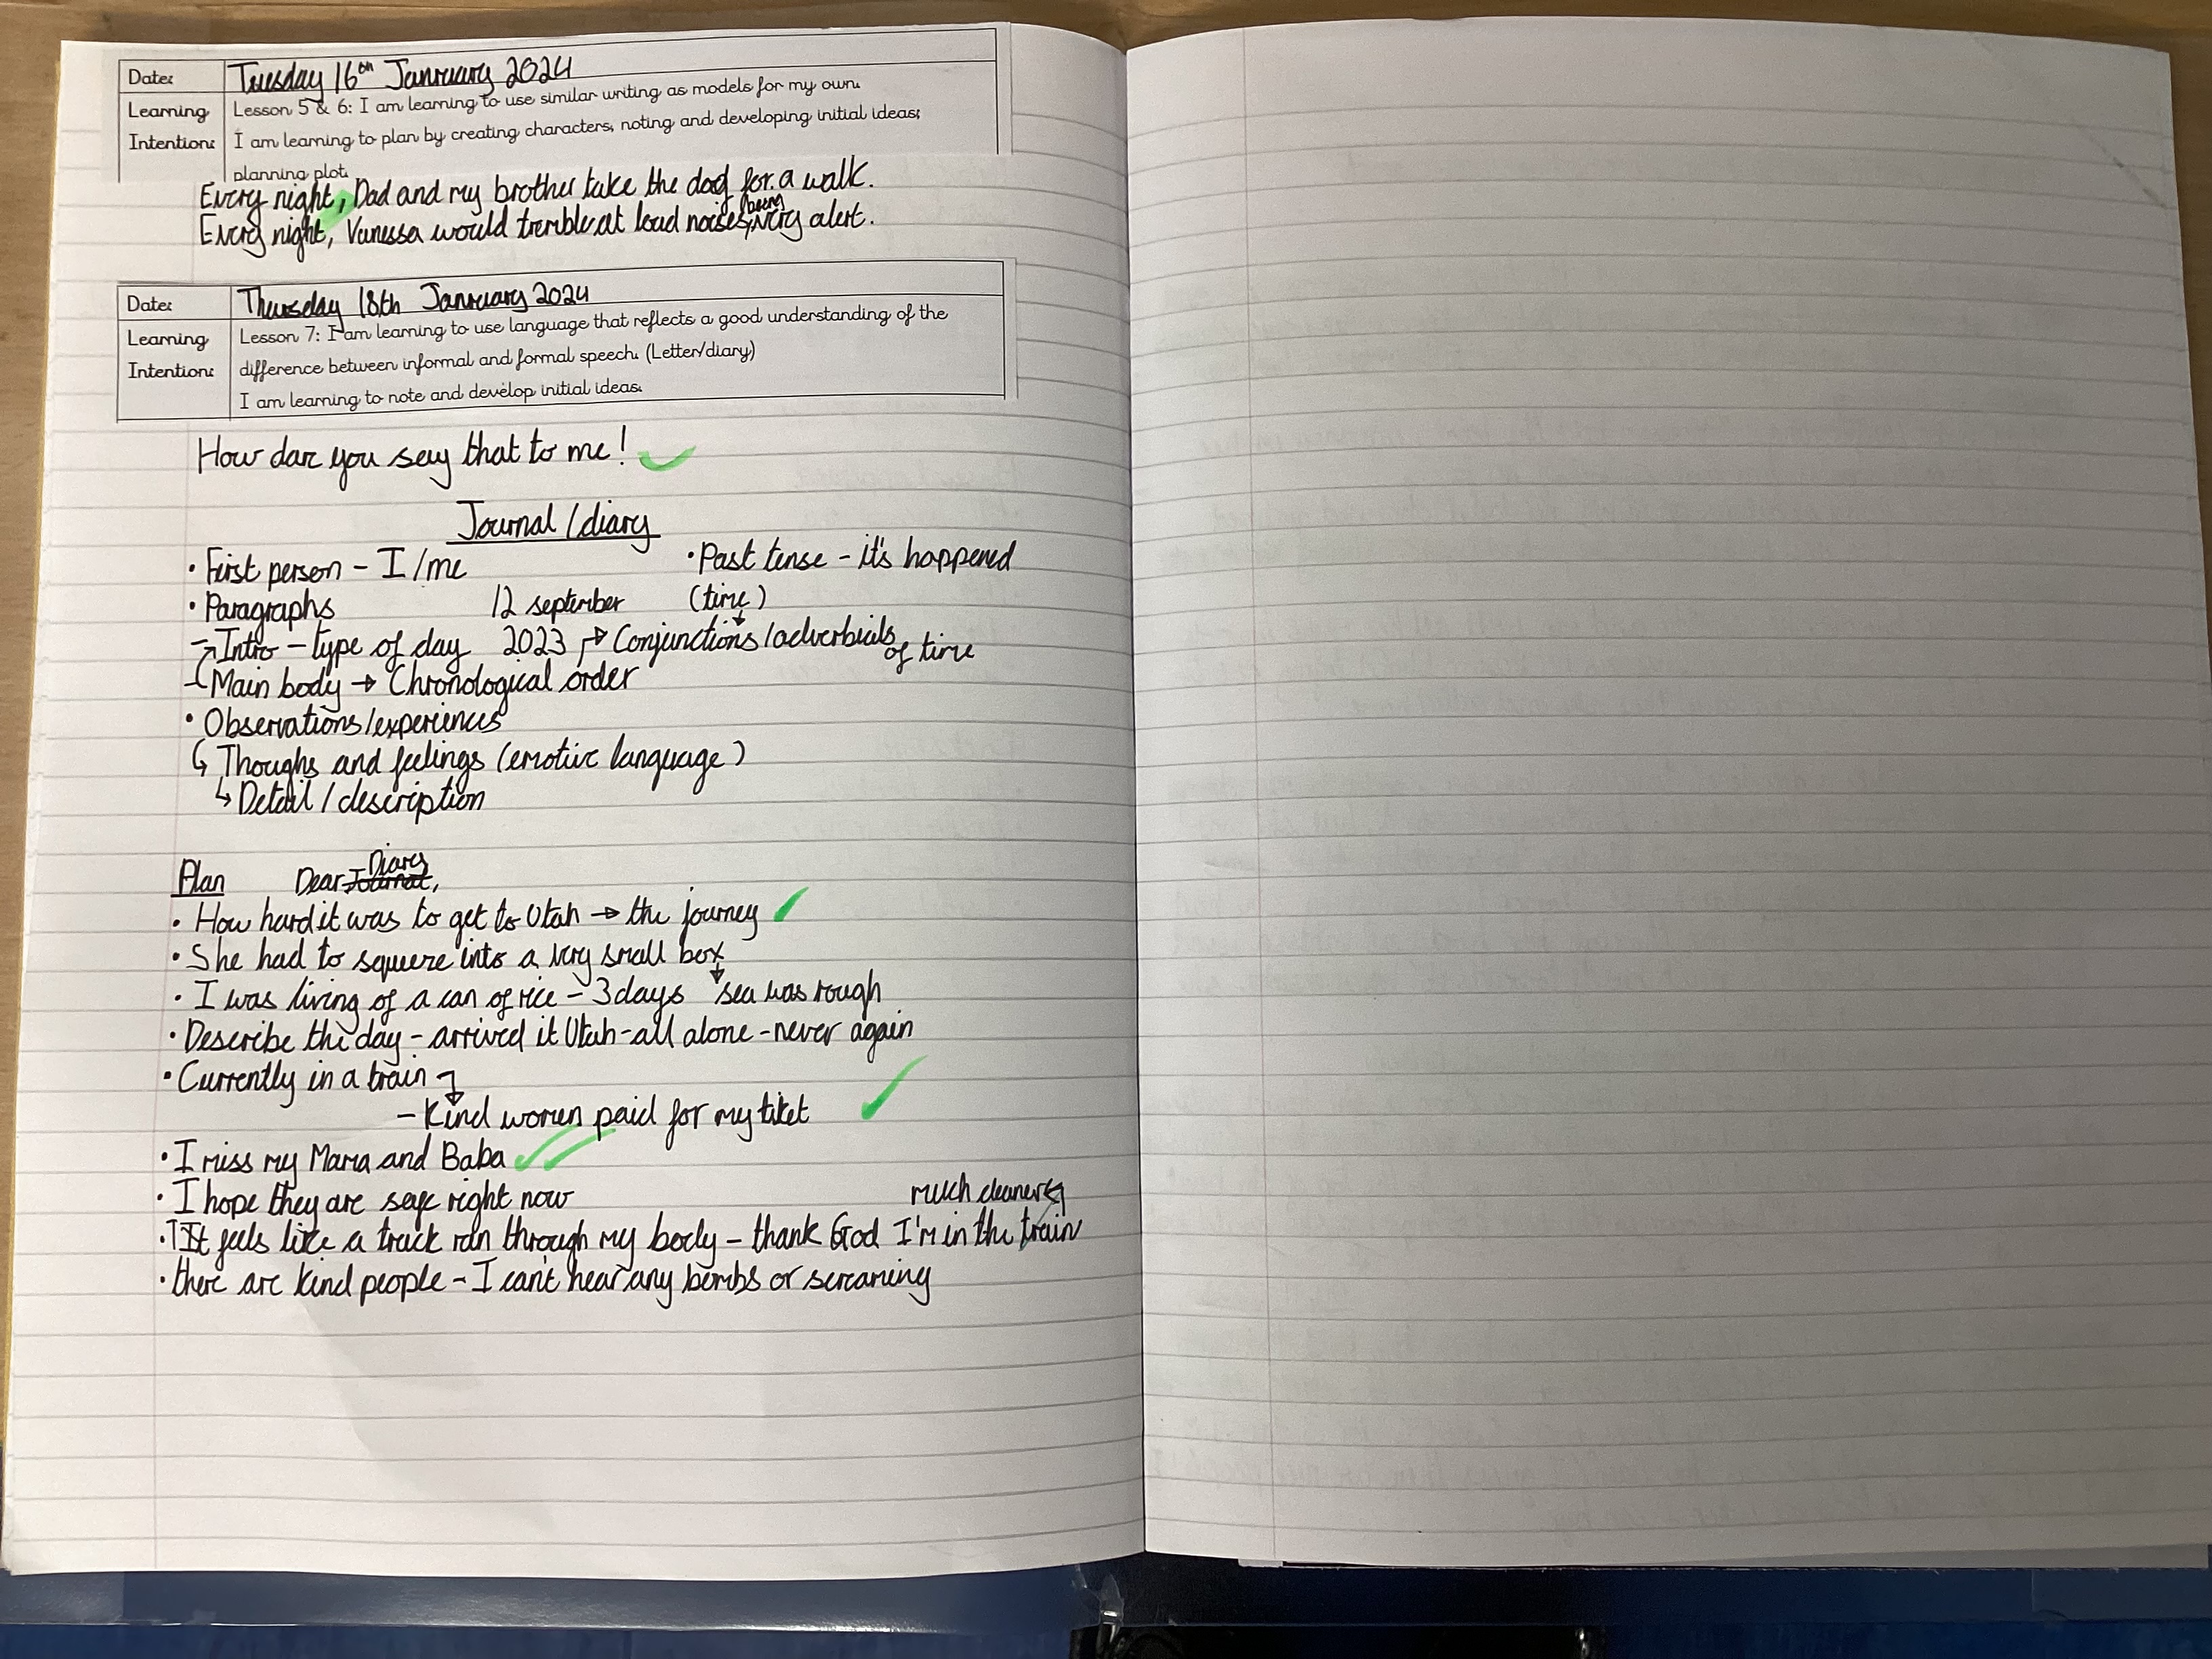 Date: Tuesday 16th Janruary 2024
Learning Intention: Lesson 5 & 6: I am learning to use similar writing as models for my own.
I am learning to plan by creating characters, noting and developing initial ideas;
planning plot.
Every night, Dad and my brother take the dog for a walk.
being
Every night, Vanessa would tremble at load noises, very alert.
Date: Thursday 18th Janruary 2024
Learning Intention: Lesson 7: I am learning to use language that reflects a good understanding of the
difference between informal and formal speech. (Letter/diary)
I am learning to note and develop initial ideas.
How dar you say that to me!
Journal/diary
• First person - I/me • Past tense - it's happened
• Paragraphs 12 september (time)
- Intro - type of day 2023 → Conjunctions/adverbials of time
- Main body → Chronological order
• Observations/experiences
↳ Thoughs and feelings (emotive language)
↳ Detail/description
Plan Dear Journal, Diary
• How hard it was to get to Utah → the journey
• She had to squeeze into a very small box
• I was living of a can of rice - 3 days sea was rough
• Describe the day - arrived it Utah - all alone - never again
• Currently in a train
- Kind women paid for my tiket
• I miss my Mama and Baba
• I hope they are safe right now much cleaner
• It feels like a truck ran through my body - thank God I'm in the train
• there are kind people - I can't hear any bombs or screaming